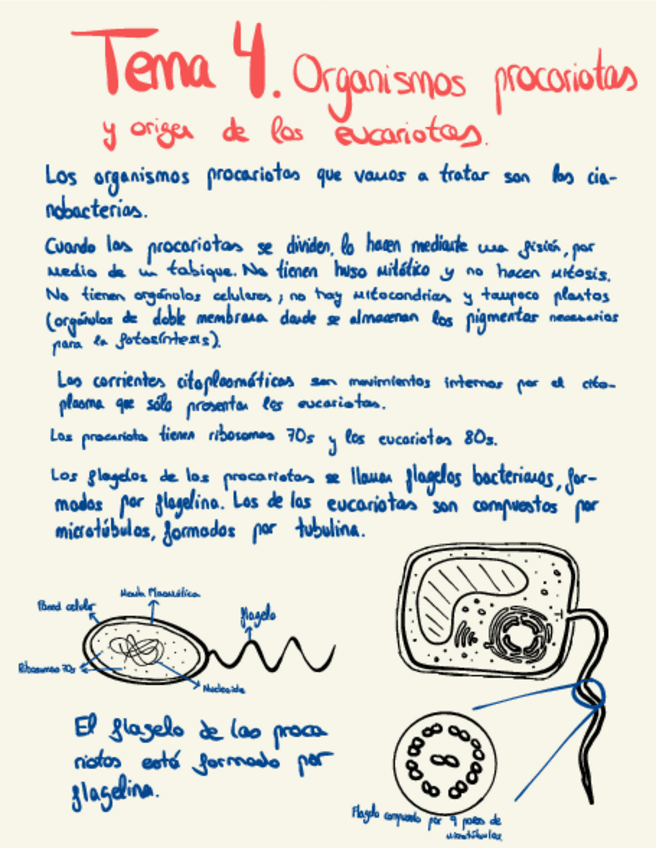 Tema 4. Organismos procariotas
y origen de los eucariotas.
Los organismos procariotas que vamos a tratar son las cia-
nobacterias.
Cuando los procariotas se dividen, lo hacen mediante una fisión, por
medio de un tabique. No tienen huso mitótico y no hacen mitosis.
No tienen orgánulos celulares; no hay mitocondrias y tampoco plastos
(orgánulos de doble membrana donde se almacenan los pigmentos necesarios
para la fotosíntesis).
Las corrientes citoplasmáticas son movimientos internos por el cito-
plasma que sólo presentan los eucariotas.
Los procariota tienen ribosomas 70s y los eucariotas 80s.
Los flagelos de los procariotas se llaman flagelos bacterianos, for-
mados por flagelina. Los de los eucariotas son compuestos por
microtúbulos, formados por tubulina.
Memb Plasmática
Pared celular
flagelo
Ribosomas 70s
Nucleoide
El flagelo de las proca
riotas está formado por
flagelina.
Flagelo compuesto por 9 pares de
microtúbulos